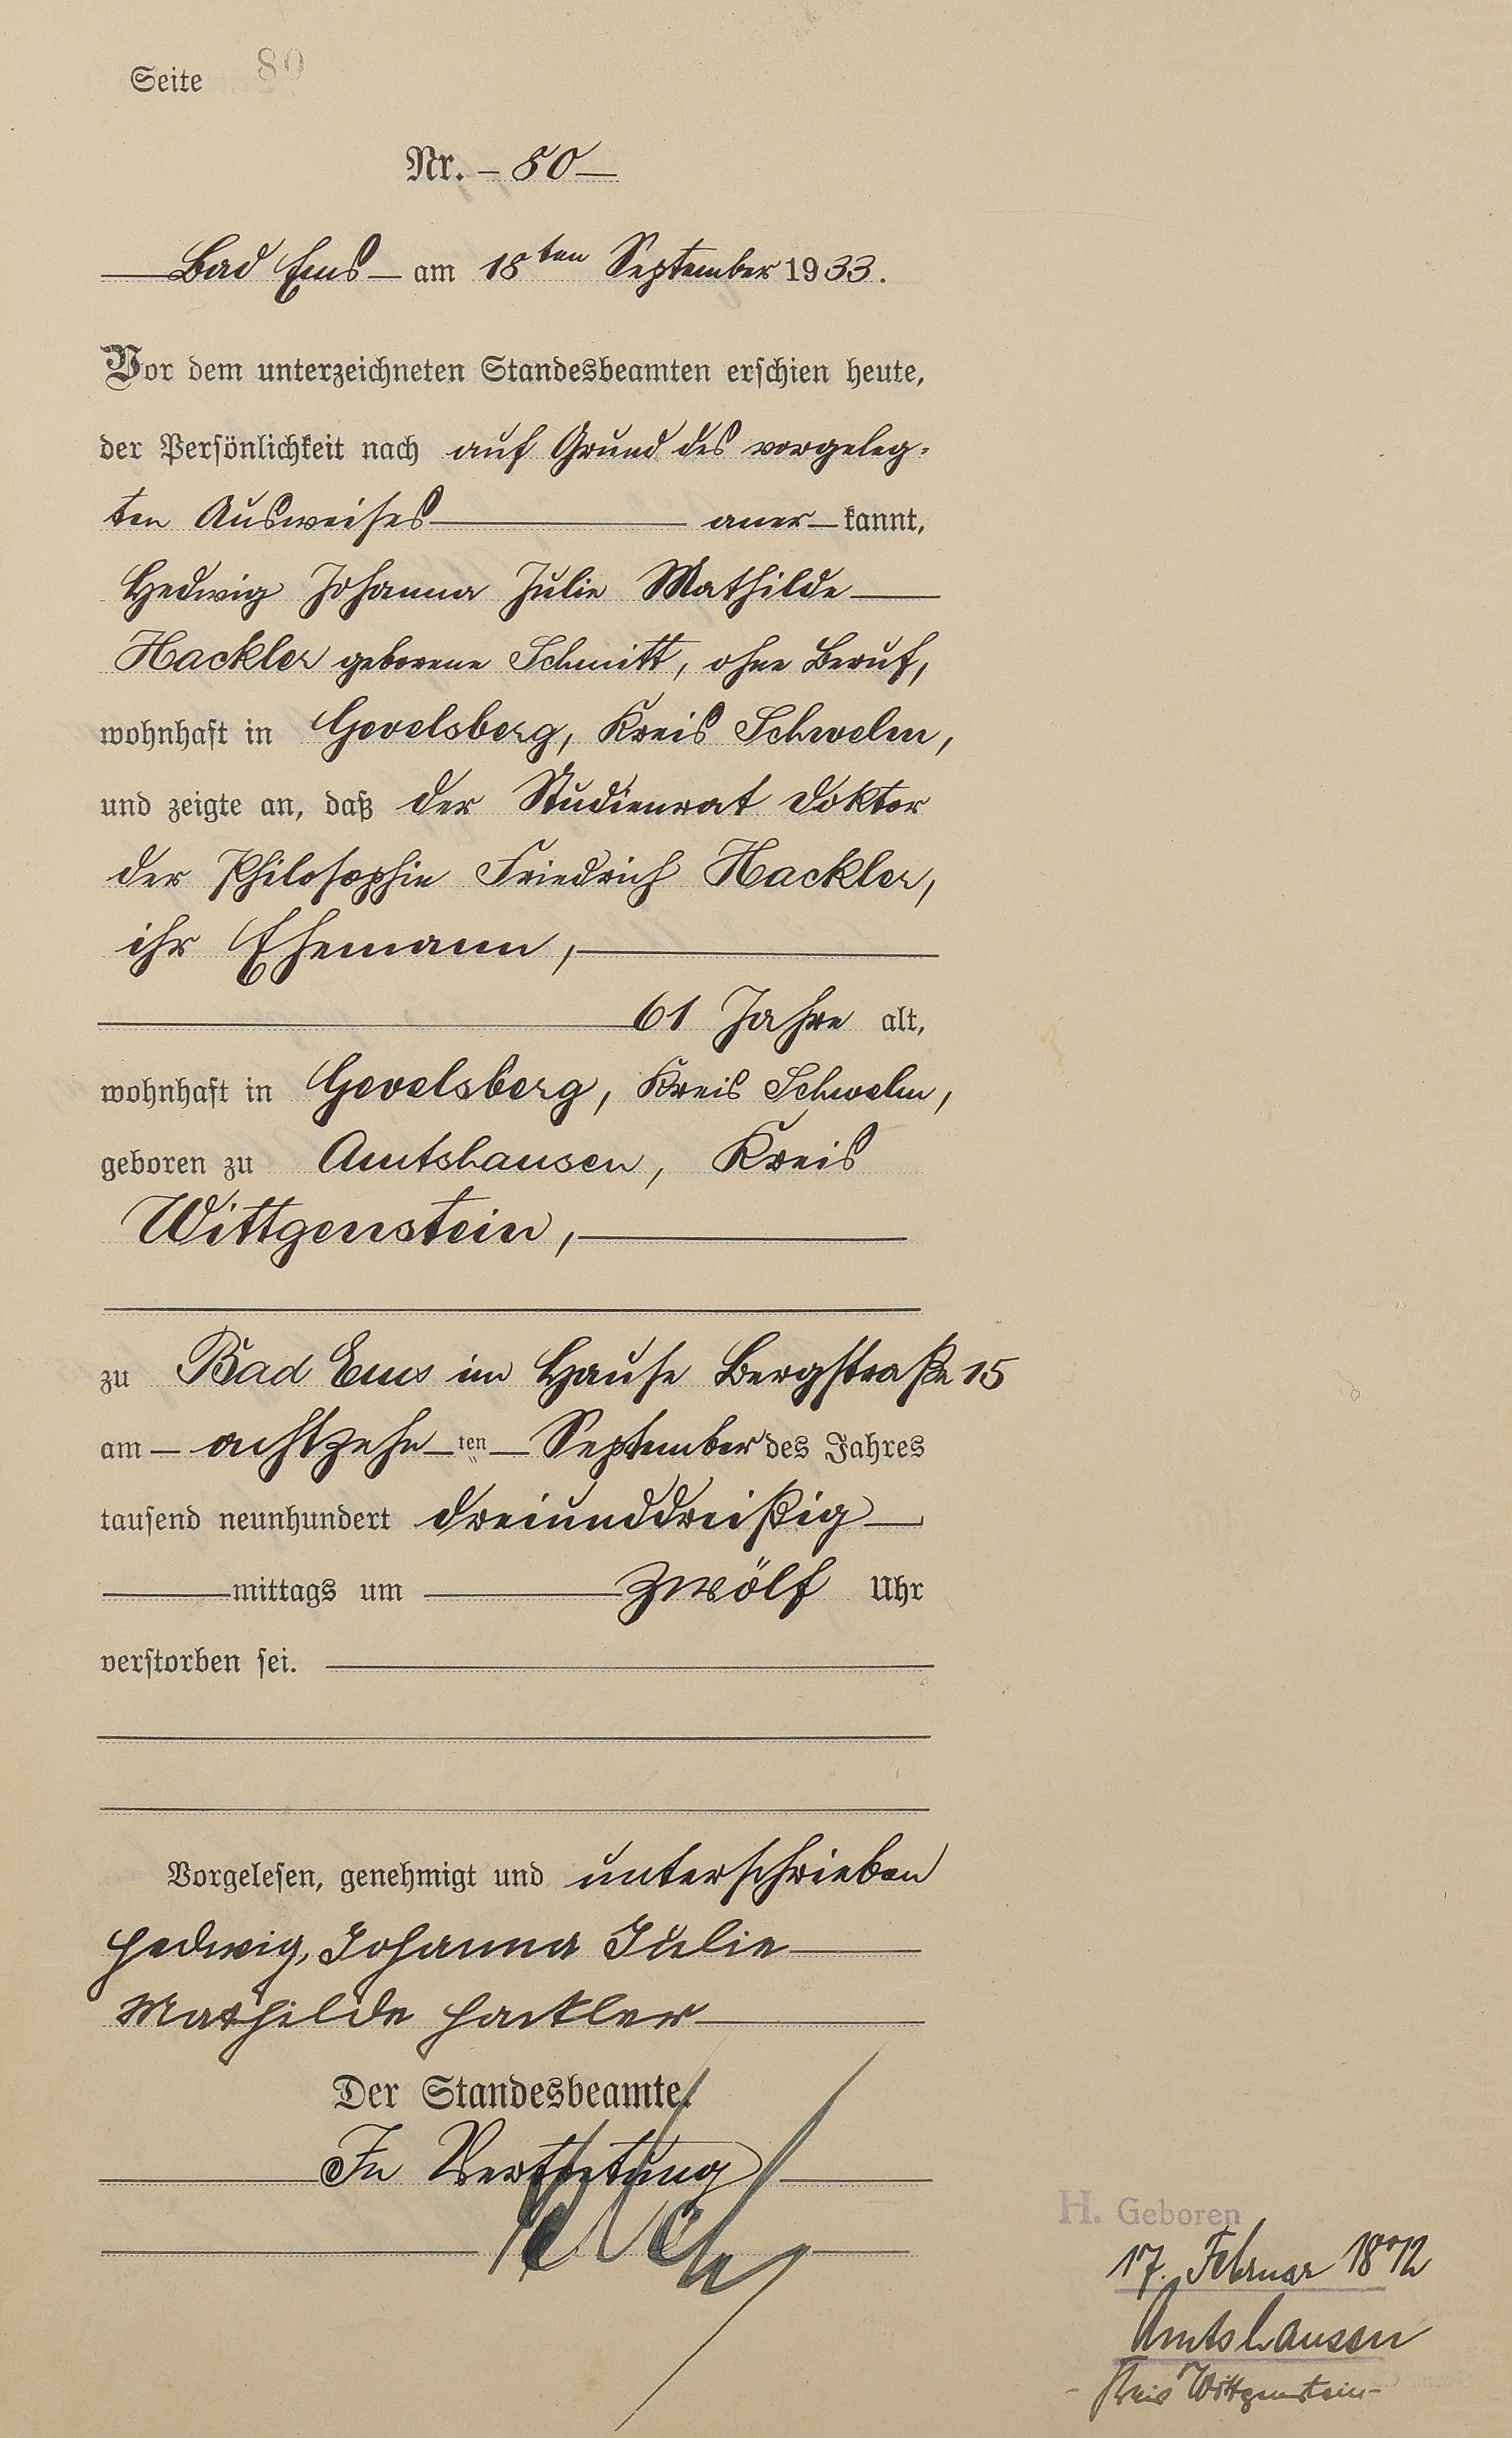 Seite 80
Nr. – 80 —
— Bad Ems — am 18ten September 1933.
Vor dem unterzeichneten Standesbeamten erschien heute,
der Persönlichkeit nach auf Grund des vorgeleg-
ten Ausweises — aner — kannt,
Hedwig Johanna Julie Mathilde —
Hackler geborene Schmitt, ohne Beruf,
wohnhaft in Gevelsberg, Kreis Schwelm,
und zeigte an, daß der Studienrat Doktor
der Philosophie Friedrich Hackler,
ihr Ehemann, —
— 61 Jahre alt,
wohnhaft in Gevelsberg, Kreis Schwelm,
geboren zu Amtshausen, Kreis
Wittgenstein, —
zu Bad Ems im Hause Bergstraße 15
am — achtzehn — ten — September des Jahres
tausend neunhundert dreiunddreißig —
— mittags um — zwölf Uhr
verstorben sei. —
Vorgelesen, genehmigt und unterschrieben
Hedwig, Johanna Julie —
Mathilde Hackler —
Der Standesbeamte.
— In Vertretung —
H. Geboren
17. Februar 1872
Amtshausen
- Kreis Wittgenstein -